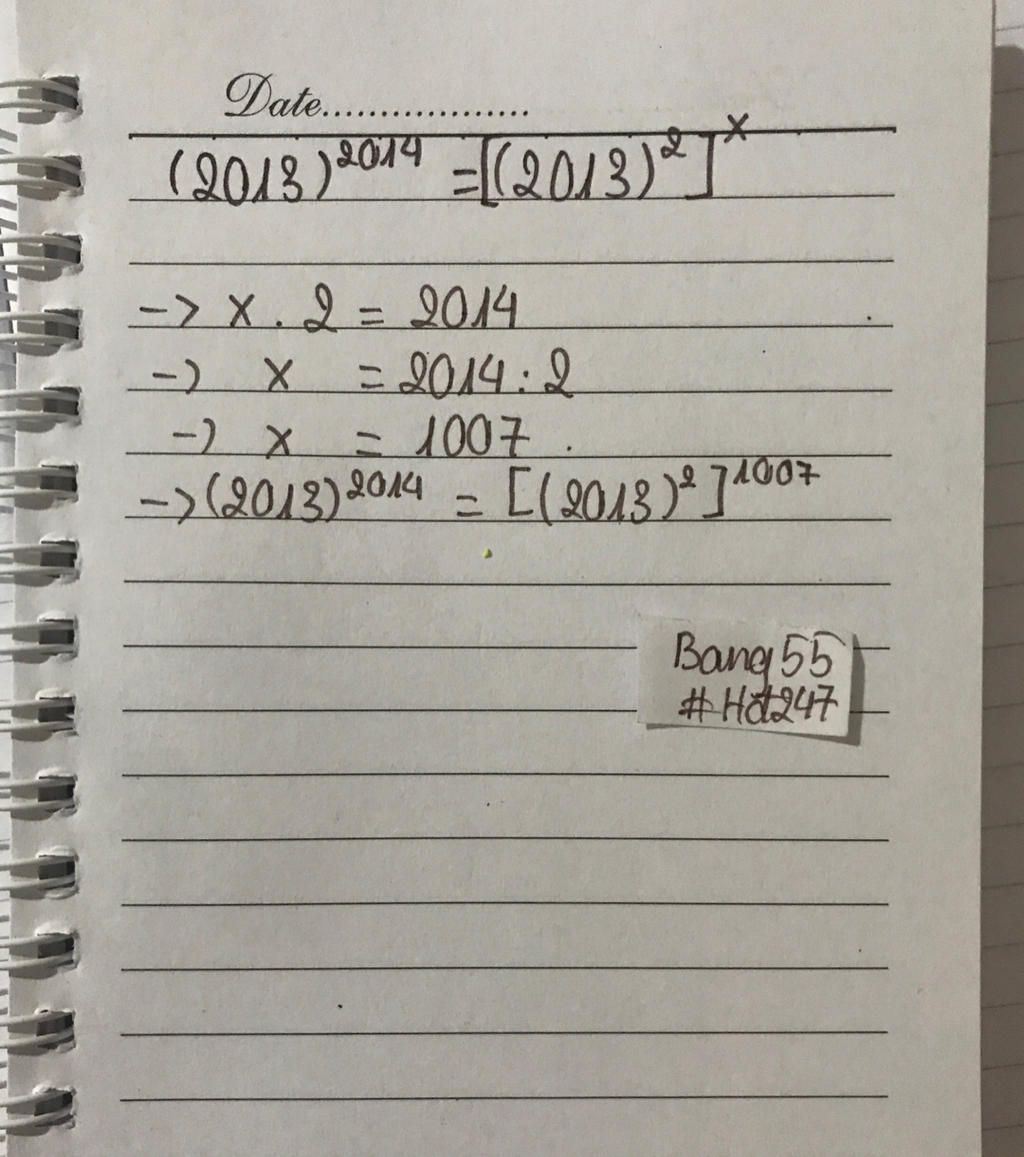 Date..................
(2013)²⁰¹⁴ = [(2013)²]ˣ
-> x . 2 = 2014
-> x = 2014 : 2
-> x = 1007 .
-> (2013)²⁰¹⁴ = [(2013)²]¹⁰⁰⁷
Bang55
#Hdt247